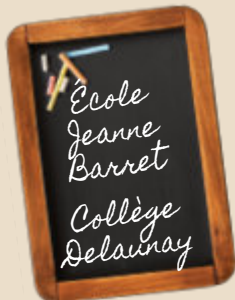 École
Jeanne
Barret
Collège
Delaunay